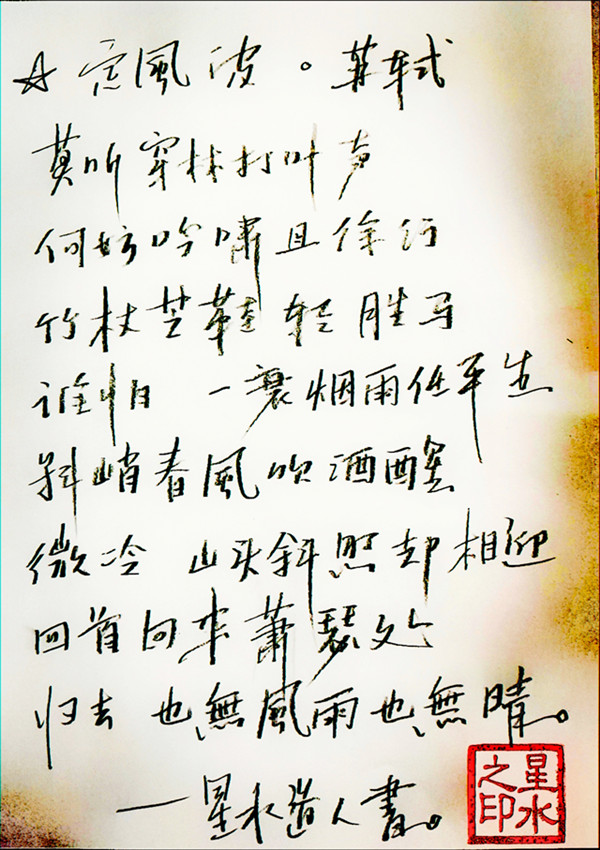 ☆ 定風波。苏轼
莫听穿林打叶声
何妨吟嘯且徐行
竹杖芒鞋轻胜马
谁怕 一蓑烟雨任平生
料峭春風吹酒醒
微冷 山头斜照却相迎
回首向来蕭瑟处
归去 也無風雨也無晴。
—星水道人書。
星水之印